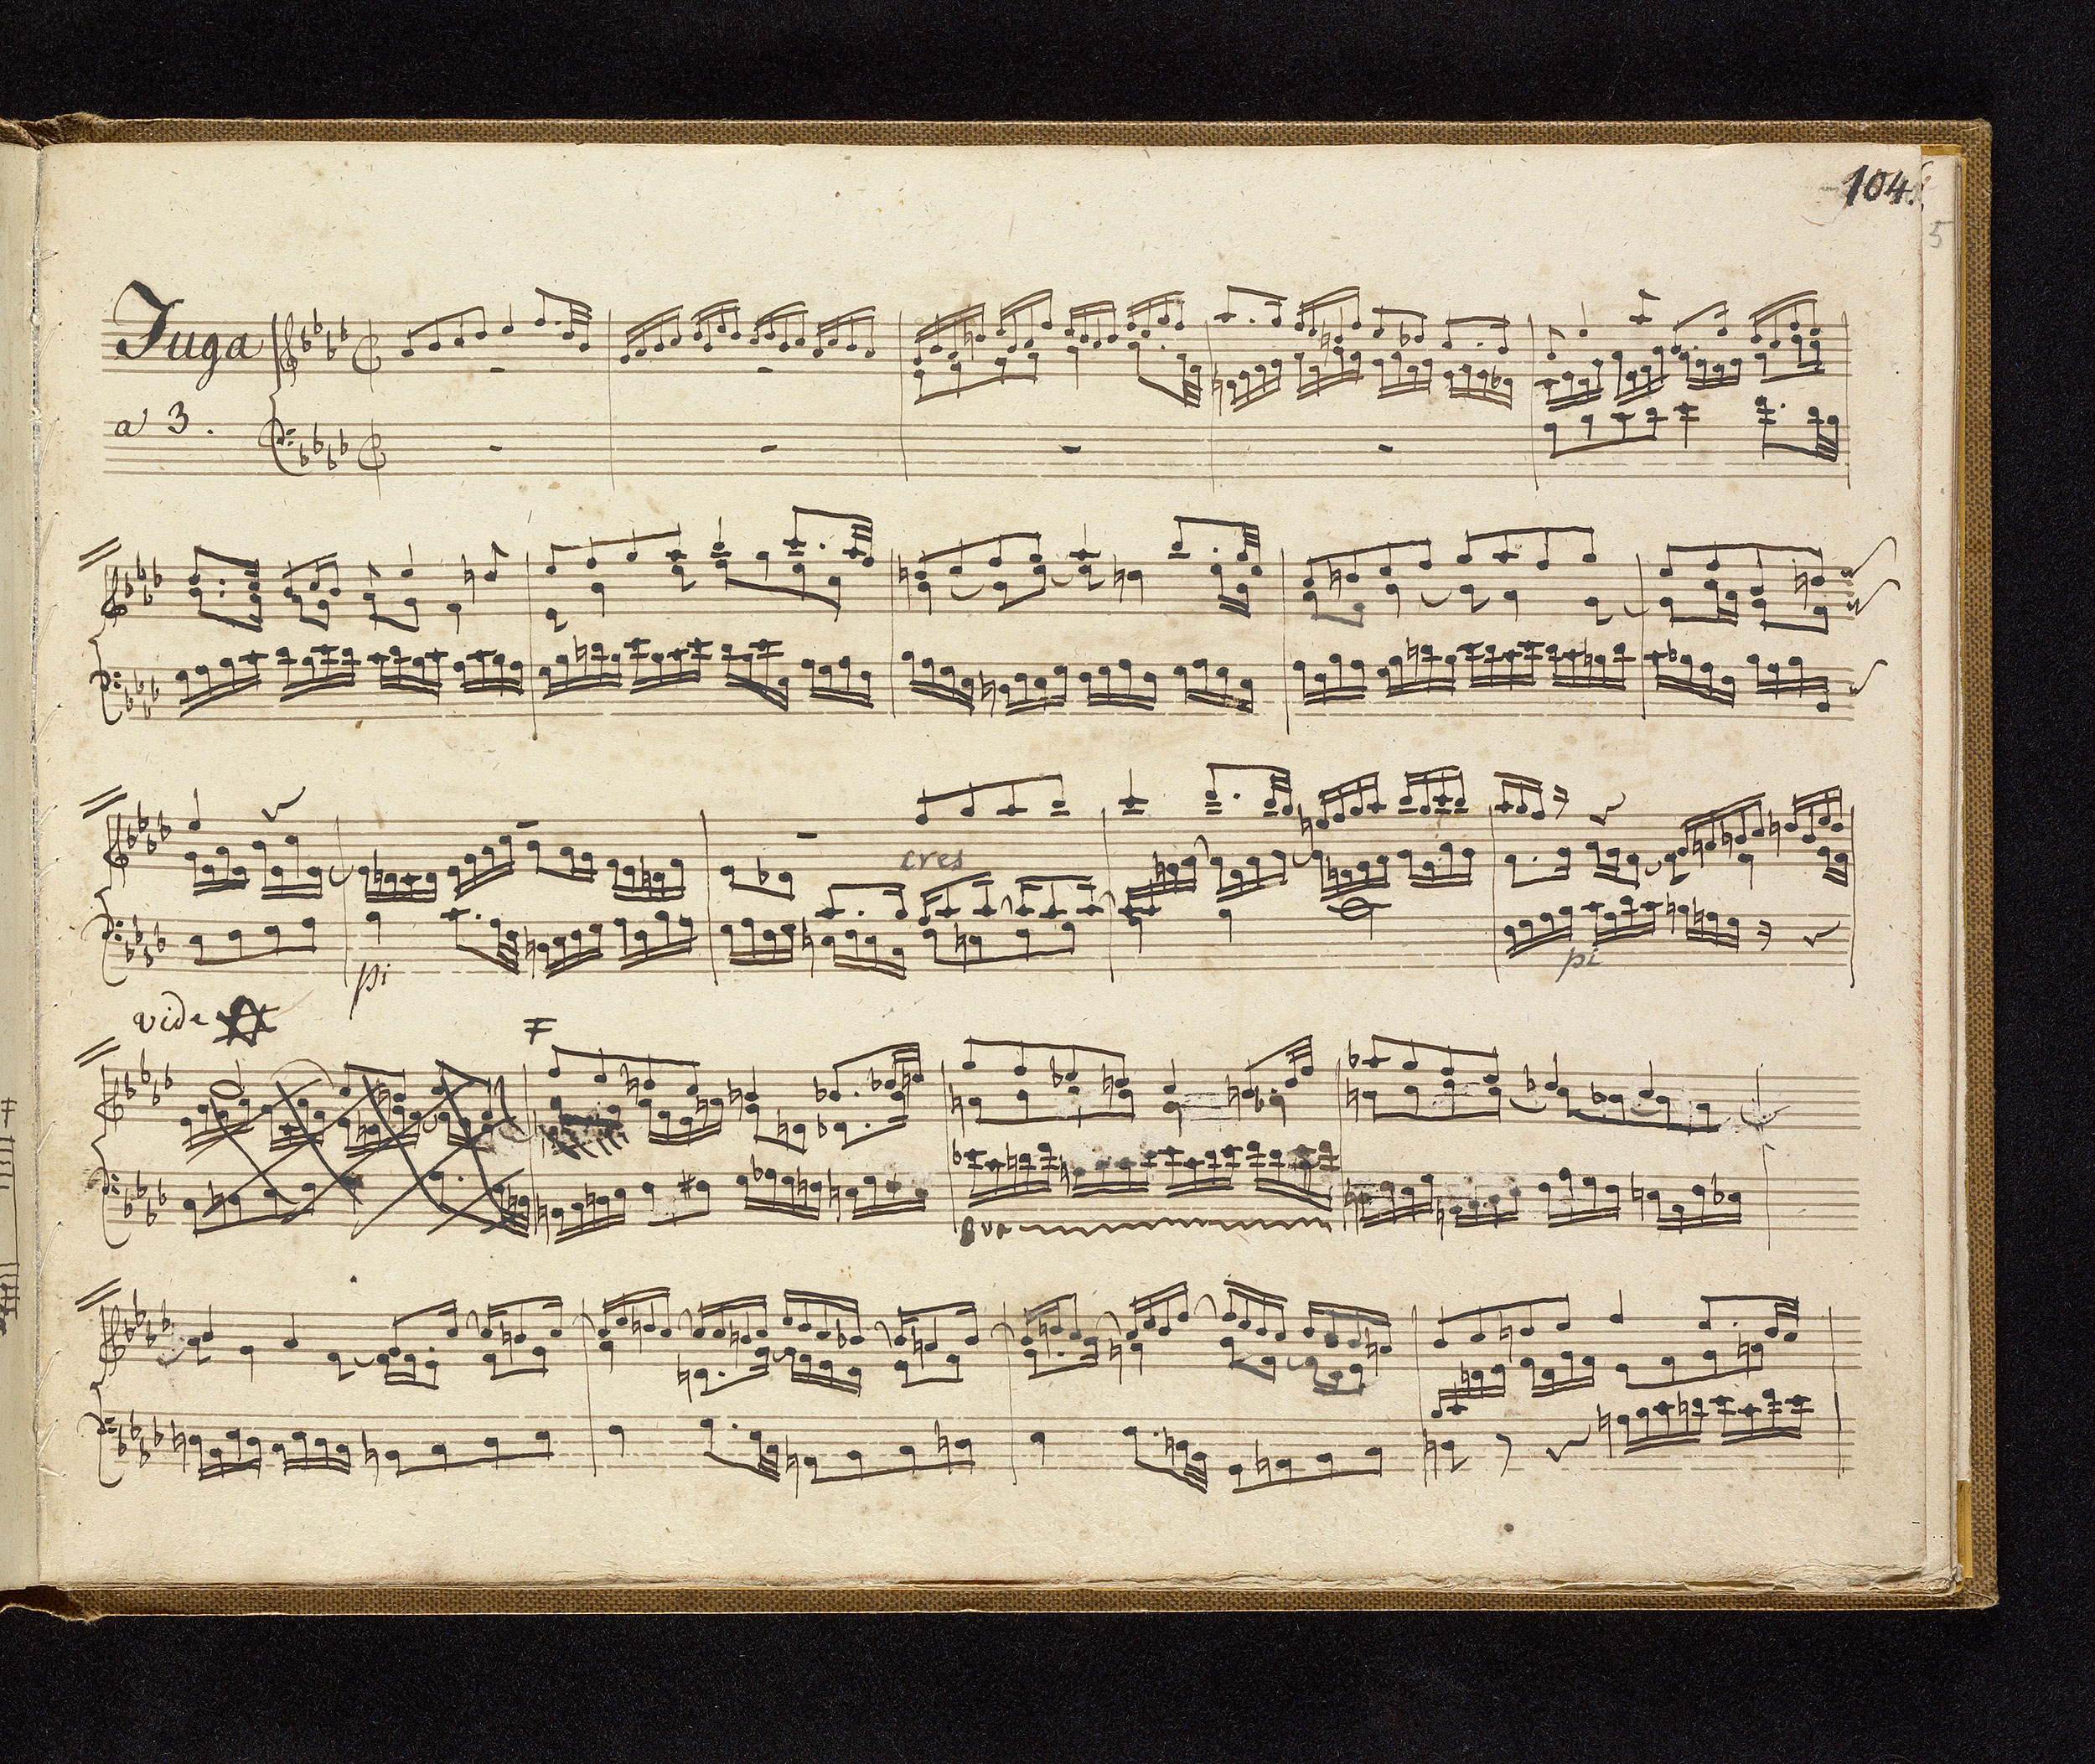 104.
5
Fuga
a 3.
cres
pi
pi
vide
8va